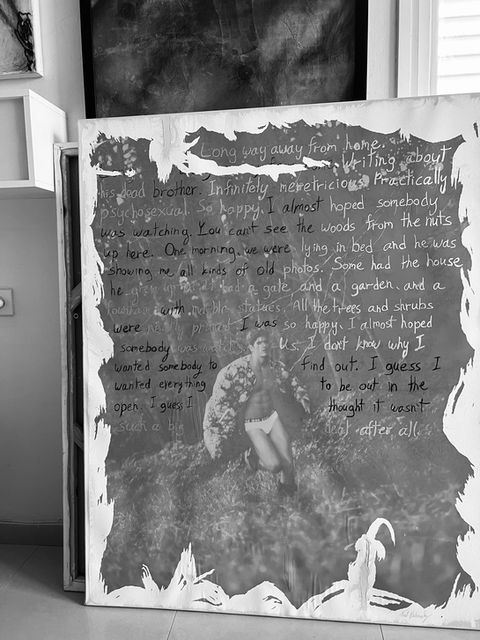 Long way away from home.
Writing about
his dead brother. Infinitely meretricious. Practically
psychosexual. So happy. I almost hoped somebody
was watching. You can't see the woods from the nuts
up here. One morning, we were lying in bed and he was
showing me all kinds of old photos. Some had the house
he grew up in. It had a gate and a garden, and a
with marble statues. All the trees and shrubs
were I was so happy. I almost hoped
somebody was us. I don't know why I
wanted somebody to find out. I guess I
wanted everything to be out in the
open. I guess I thought it wasn't
such a big deal after all.